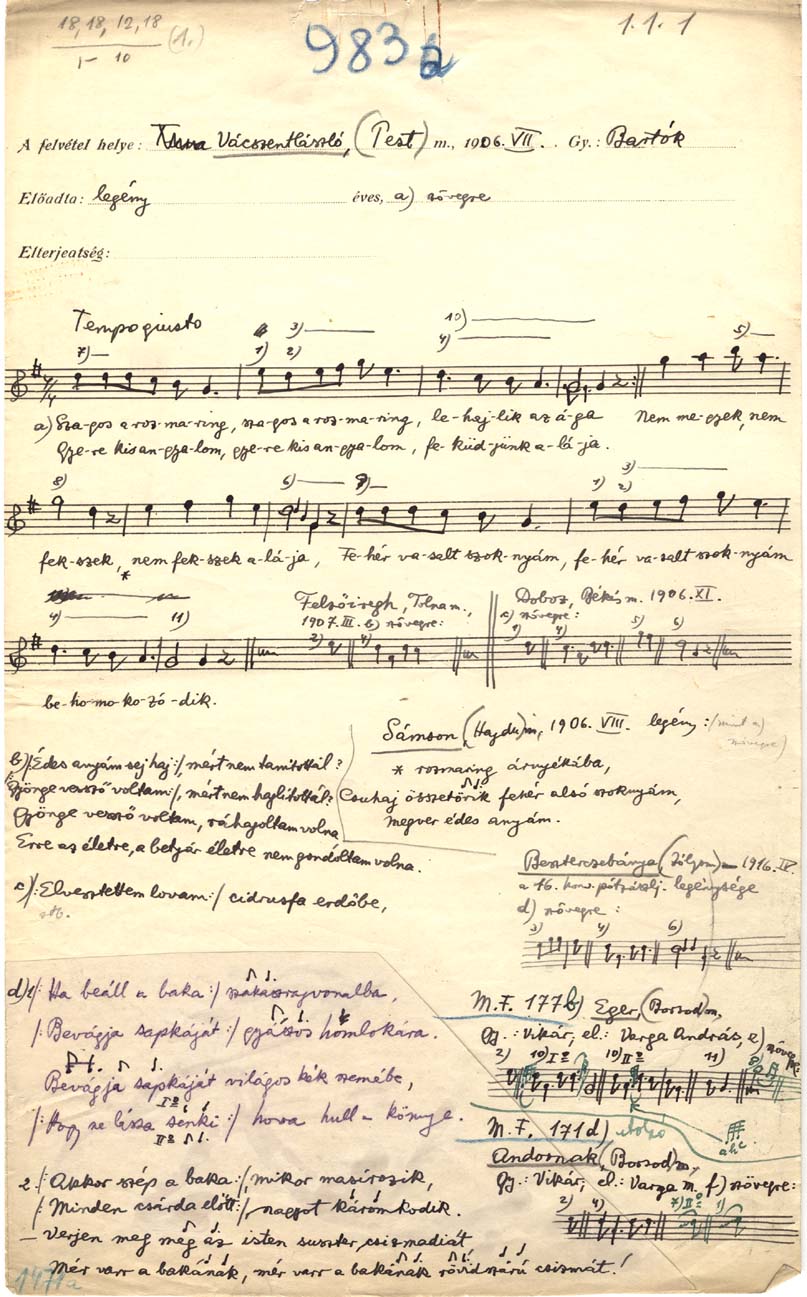 18, 18, 12, 18 (1.)
1.1.1
983 a
A felvétel helye: Vácszentlászló, (Pest) m., 1906. VII. Gy.: Bartók
Előadta: legény éves, a) szövegre
Elterjeatség:
Tempo giusto
7) 1) 3) 2) 10) 4) 5)
a) Sza-gos a roz-ma-ring, sza-gos a roz-ma-ring, le-haj-lik az á-ga Nem me-gyek, nem
Gye-re kis an-gya-lom, gye-re kis an-gya-lom, fe-küd-jünk a-lá-ja.
8) 6) 1) 3) 2)
fek-szek, nem fek-szek a-lá-ja, Fe-hér va-salt szok-nyám, fe-hér va-salt szok-nyám
*
4) 11)
Felsőiregh, Tolna m., 1907. III. b) szövegre:
Doboz, Békés m. 1906. XI.
c) szövegre:
be-ho-mo-ko-zó-dik.
Sámson (Hajdu) m, 1906. VIII. legény: /mint a) szövegre)
* rozmaring árnyékába,
Csuhaj összetörik fehér alsó szoknyám,
megver édes anyám.
b) /:Édes anyám sej haj:/, mért nem tanitottál?
/:Gyönge vessző voltam:/, mért nem hajlitottál?
Gyönge vessző voltam, ráhajoltam volna
Erre az életre, a betyár életre nem gondoltam volna.
c) /:Elvesztettem lovam:/ cidrusfa erdőbe,
stb.
Besztercebánya (Zólyom) 1916. IV.
a 16. honv. legénysége
d) szövegre:
3) 4) 6)
d) 1. /: Ha beáll a baka :/ szakaszrajvonalba,
/: Bevágja sapkáját :/ gyászos homlokára.
Bevágja sapkáját világos kék szemébe,
/: Hogy ne lássa senki :/ hova hull a könnye.
M.F. 177b) Eger, (Borsod) m,
Gy.: Vikár, el.: Varga András, e) szövegre
2) 10) I⁰ 10) II⁰ 11)
M.F. 171d) utolsó
Andornak, (Borsod) m,
Gy.: Vikár, el.: Varga m. f) szövegre:
2) 4) 7) II⁰ 1)
2. /: Akkor szép a baka :/, mikor masirozik,
/: Minden csárda előtt :/, nagyot káromkodik.
– Verjen meg még az isten suszter, csizmadiát
Mér varr a bakának, mér varr a bakának rövidszárú csizmát!
1471a